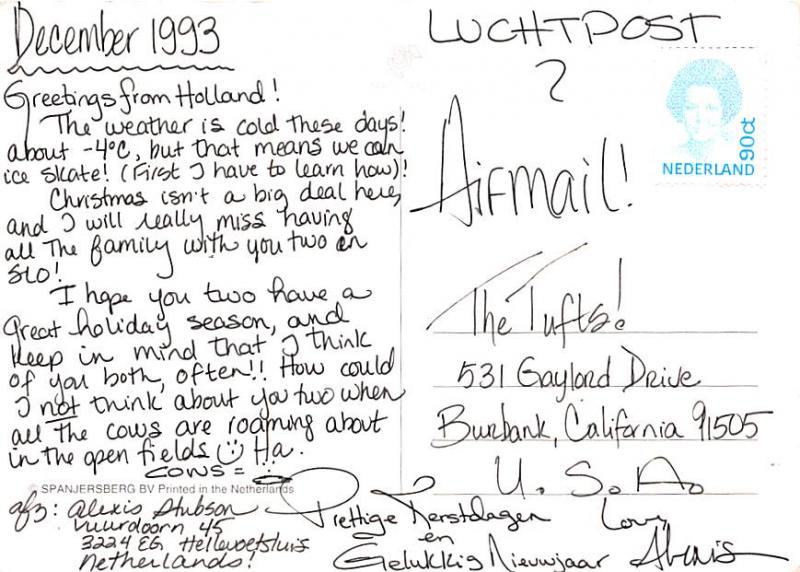 December 1993
Greetings from Holland!
The weather is cold these days!
about -4°C, but that means we can
ice skate! (First I have to learn how)!
Christmas isn't a big deal here,
and I will really miss having
all the family with you two in
SLO!
I hope you two have a
great holiday season, and
keep in mind that I think
of you both, often!! How could
I not think about you two when
all the cows are roaming about
in the open fields Ha.
cows =
© SPANJERSBERG BV Printed in the Netherlands
afz: Alexis Stubson
Vuurdoorn 45
3224 EG Hellevoetsluis
Netherlands!
LUCHTPOST
?
Airmail!
NEDERLAND
90ct
The Tufts!
531 Gaylord Drive
Burbank, California 91505
U.S.A.
Prettige Kerstdagen
en
Gelukkig Nieuwjaar
Love,
Alexis